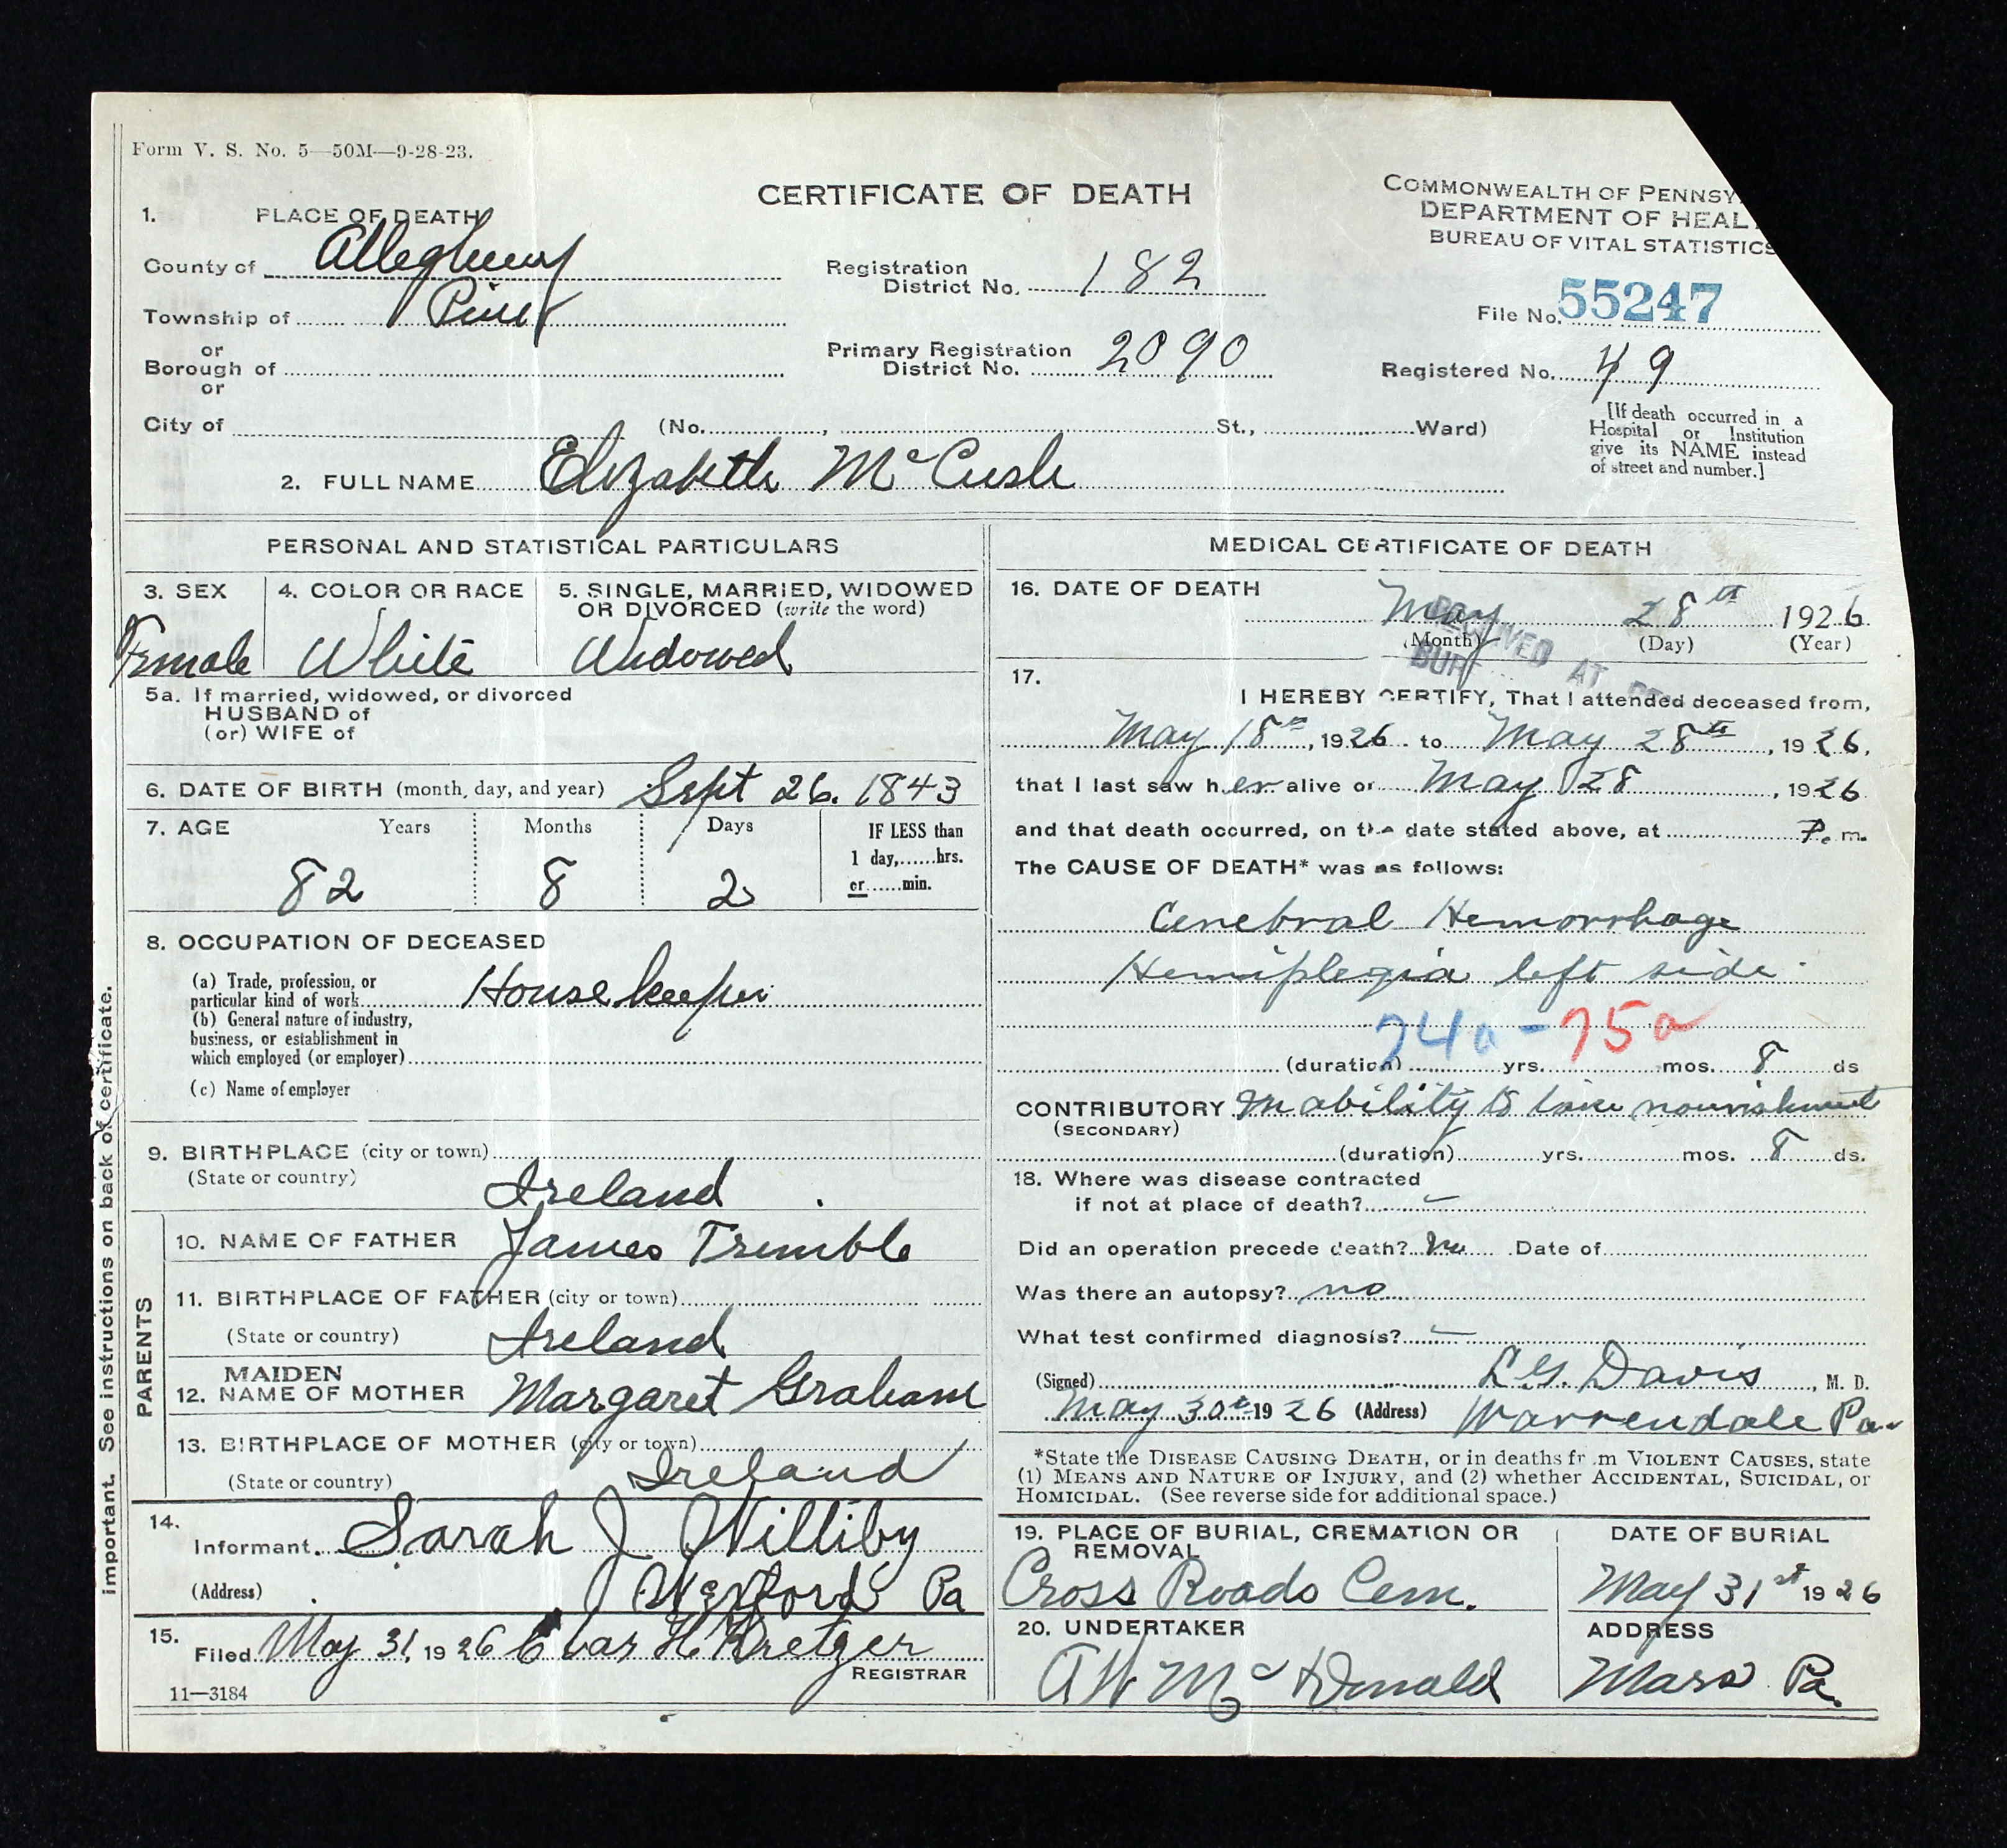 Form V. S. No. 5—50M—9-28-23.
CERTIFICATE OF DEATH
COMMONWEALTH OF PENNSY
DEPARTMENT OF HEAL
BUREAU OF VITAL STATISTICS
1. PLACE OF DEATH
County of Allegheny
Township of Pine
or
Borough of
or
City of
Registration District No. 182
Primary Registration District No. 2090
File No. 55247
Registered No. 49
(No. , St., Ward)
[If death occurred in a
Hospital or Institution
give its NAME instead
of street and number.]
2. FULL NAME Elizabeth McCusk
PERSONAL AND STATISTICAL PARTICULARS
3. SEX
Female
4. COLOR OR RACE
White
5. SINGLE, MARRIED, WIDOWED
OR DIVORCED (write the word)
Widowed
5a. If married, widowed, or divorced
HUSBAND of
(or) WIFE of
6. DATE OF BIRTH (month, day, and year) Sept 26. 1843
7. AGE Years Months Days
82 8 2
IF LESS than
1 day,......hrs.
or......min.
8. OCCUPATION OF DECEASED
(a) Trade, profession, or
particular kind of work Housekeeper
(b) General nature of industry,
business, or establishment in
which employed (or employer)
(c) Name of employer
9. BIRTHPLACE (city or town)
(State or country) Ireland
PARENTS
10. NAME OF FATHER James Trimble
11. BIRTHPLACE OF FATHER (city or town)
(State or country) Ireland
MAIDEN
12. NAME OF MOTHER Margaret Graham
13. BIRTHPLACE OF MOTHER (city or town)
(State or country) Ireland
14. Informant. Sarah J Williby
(Address) Wexford Pa
15. Filed May 31, 1926 Chas H Kretzer
REGISTRAR
11—3184
important. See instructions on back of certificate.
MEDICAL CERTIFICATE OF DEATH
16. DATE OF DEATH
May 28th 1926
(Month) (Day) (Year)
RECEIVED AT
BUR
17.
I HEREBY CERTIFY, That I attended deceased from,
May 18th, 1926. to May 28th, 1926.
that I last saw her alive on May 28, 1926
and that death occurred, on the date stated above, at P. m.
The CAUSE OF DEATH* was as follows:
Cerebral Hemorrhage
Hemiplegia left side
74a - 75a
(duration) yrs. mos. 8 ds
CONTRIBUTORY Inability to take nourishment
(SECONDARY)
(duration) yrs. mos. 8 ds.
18. Where was disease contracted
if not at place of death? –
Did an operation precede death? No Date of
Was there an autopsy? no
What test confirmed diagnosis? –
(Signed) L.G. Davis, M. D.
May 30th 1926 (Address) Warrendale Pa.
*State the DISEASE CAUSING DEATH, or in deaths fr m VIOLENT CAUSES, state
(1) MEANS AND NATURE OF INJURY, and (2) whether ACCIDENTAL, SUICIDAL, or
HOMICIDAL. (See reverse side for additional space.)
19. PLACE OF BURIAL, CREMATION OR
REMOVAL
Cross Roads Cem.
DATE OF BURIAL
May 31st 1926
20. UNDERTAKER
A W McDonald
ADDRESS
Mars Pa.